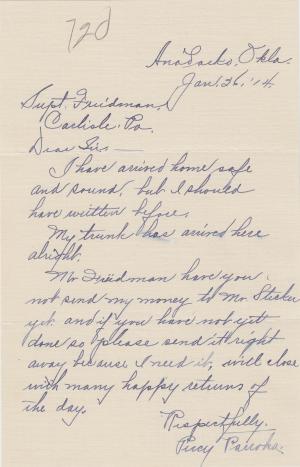 720
Anadarko, Okla.
Jan. 26, '14.
Supt. Friedman,
Carlisle Pa.
Dear Sir:—
I have arived home safe
and sound, but I should
have written before.
My trunk has arived here
alright.
Mr Friedman have you
not send my money to Mr. Stecker
yet. and if you have not yet
done so please send it right
away because I need it, will close
with many happy returns of
the day.
Respertfully,
Percy